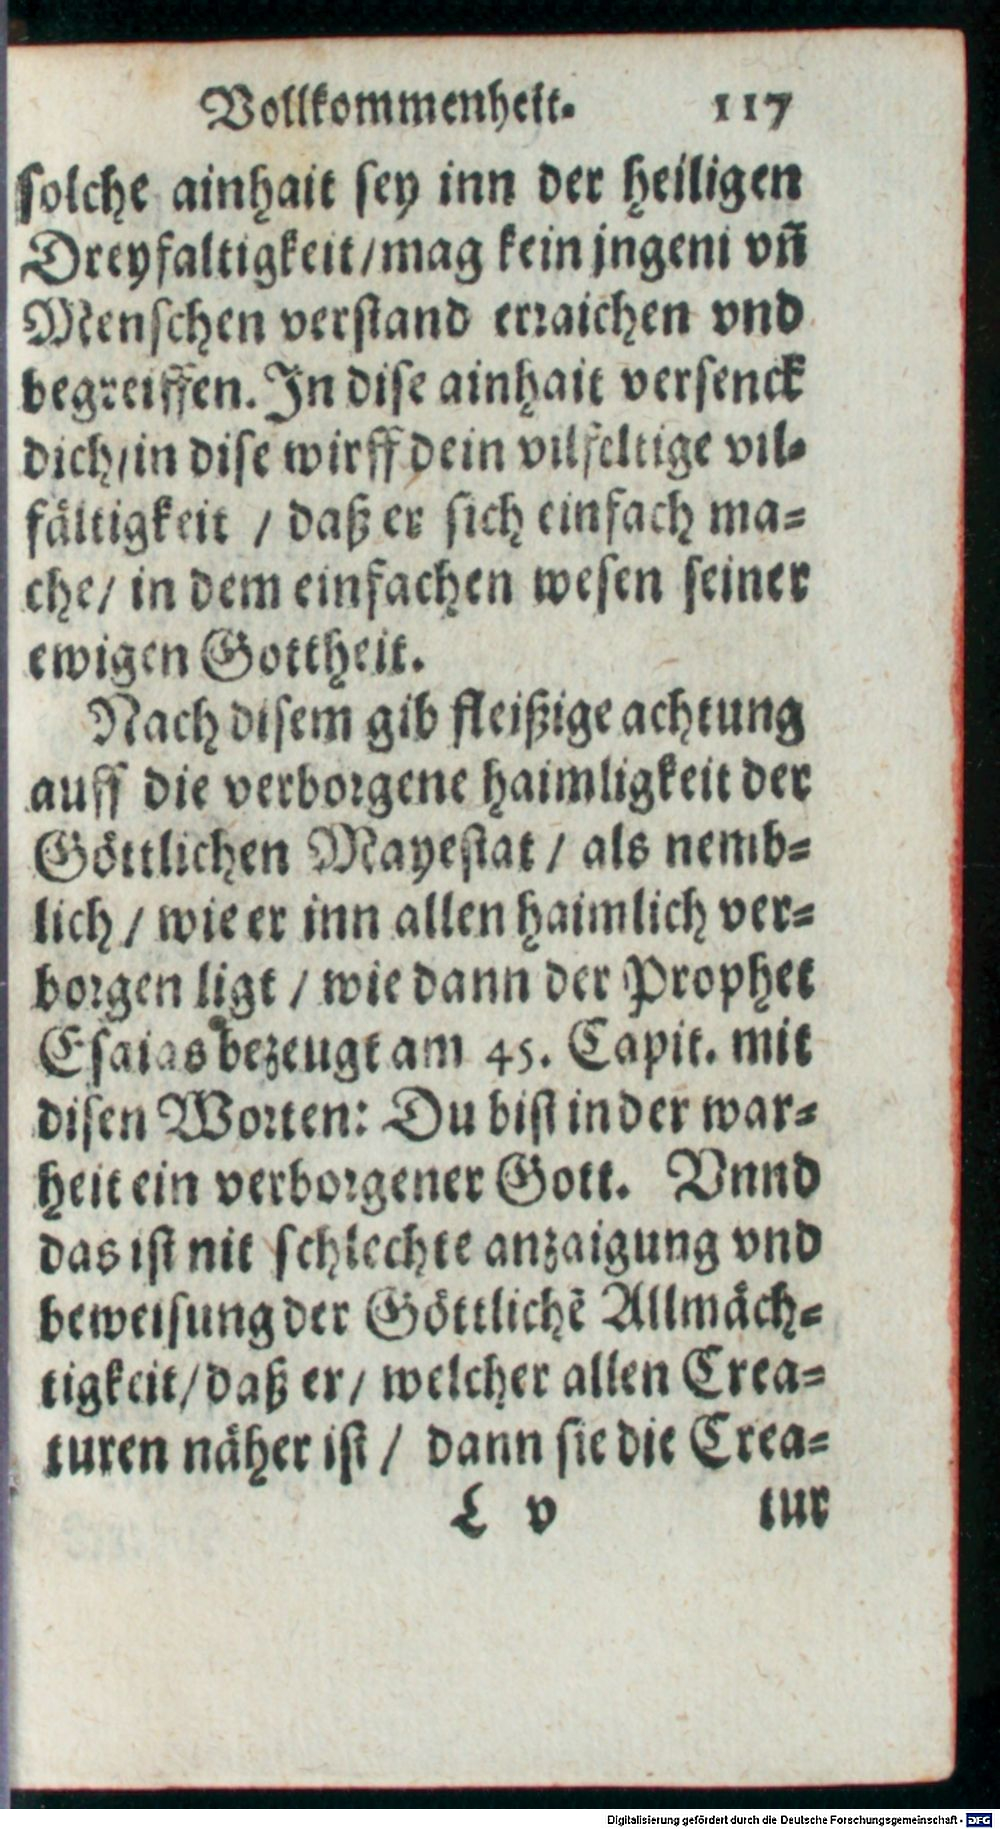 Vollkommenheit. 117
solche ainhait sey inn der heiligen
Dreyfaltigkeit/mag kein jngeni vñ
Menschen verstand erraichen vnd
begreiffen. In dise ainhait versenck
dich/in dise wirff dein vilfeltige vil-
fältigkeit / daß er sich einfach ma-
che/ in dem einfachen wesen seiner
ewigen Gottheit.
Nach disem gib fleißige achtung
auff die verborgene haimligkeit der
Göttlichen Mayestat / als nemb-
lich / wie er inn allen haimlich ver-
borgen ligt / wie dann der Prophet
Esaias bezeugt am 45. Capit. mit
disen Worten: Du bist in der war-
heit ein verborgener Gott. Vnnd
das ist nit schlechte anzaigung vnd
beweisung der Göttlichẽ Allmäch-
tigkeit/daß er/ welcher allen Crea-
turen näher ist / dann sie die Crea-
L v tur
Digitalisierung gefördert durch die Deutsche Forschungsgemeinschaft - DFG